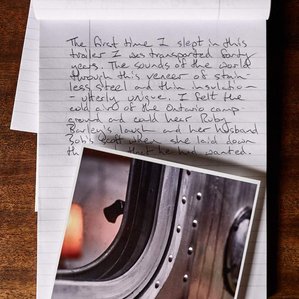 The first time I slept in this
trailer I was transported forty
years. The sounds of the world
through this veneer of stain-
less steel and thin insulation
- utterly unique. I felt the
cold air of the Ontario camp
ground and could hear Ruby
laugh and her husband
when she laid down
that he had wanted.